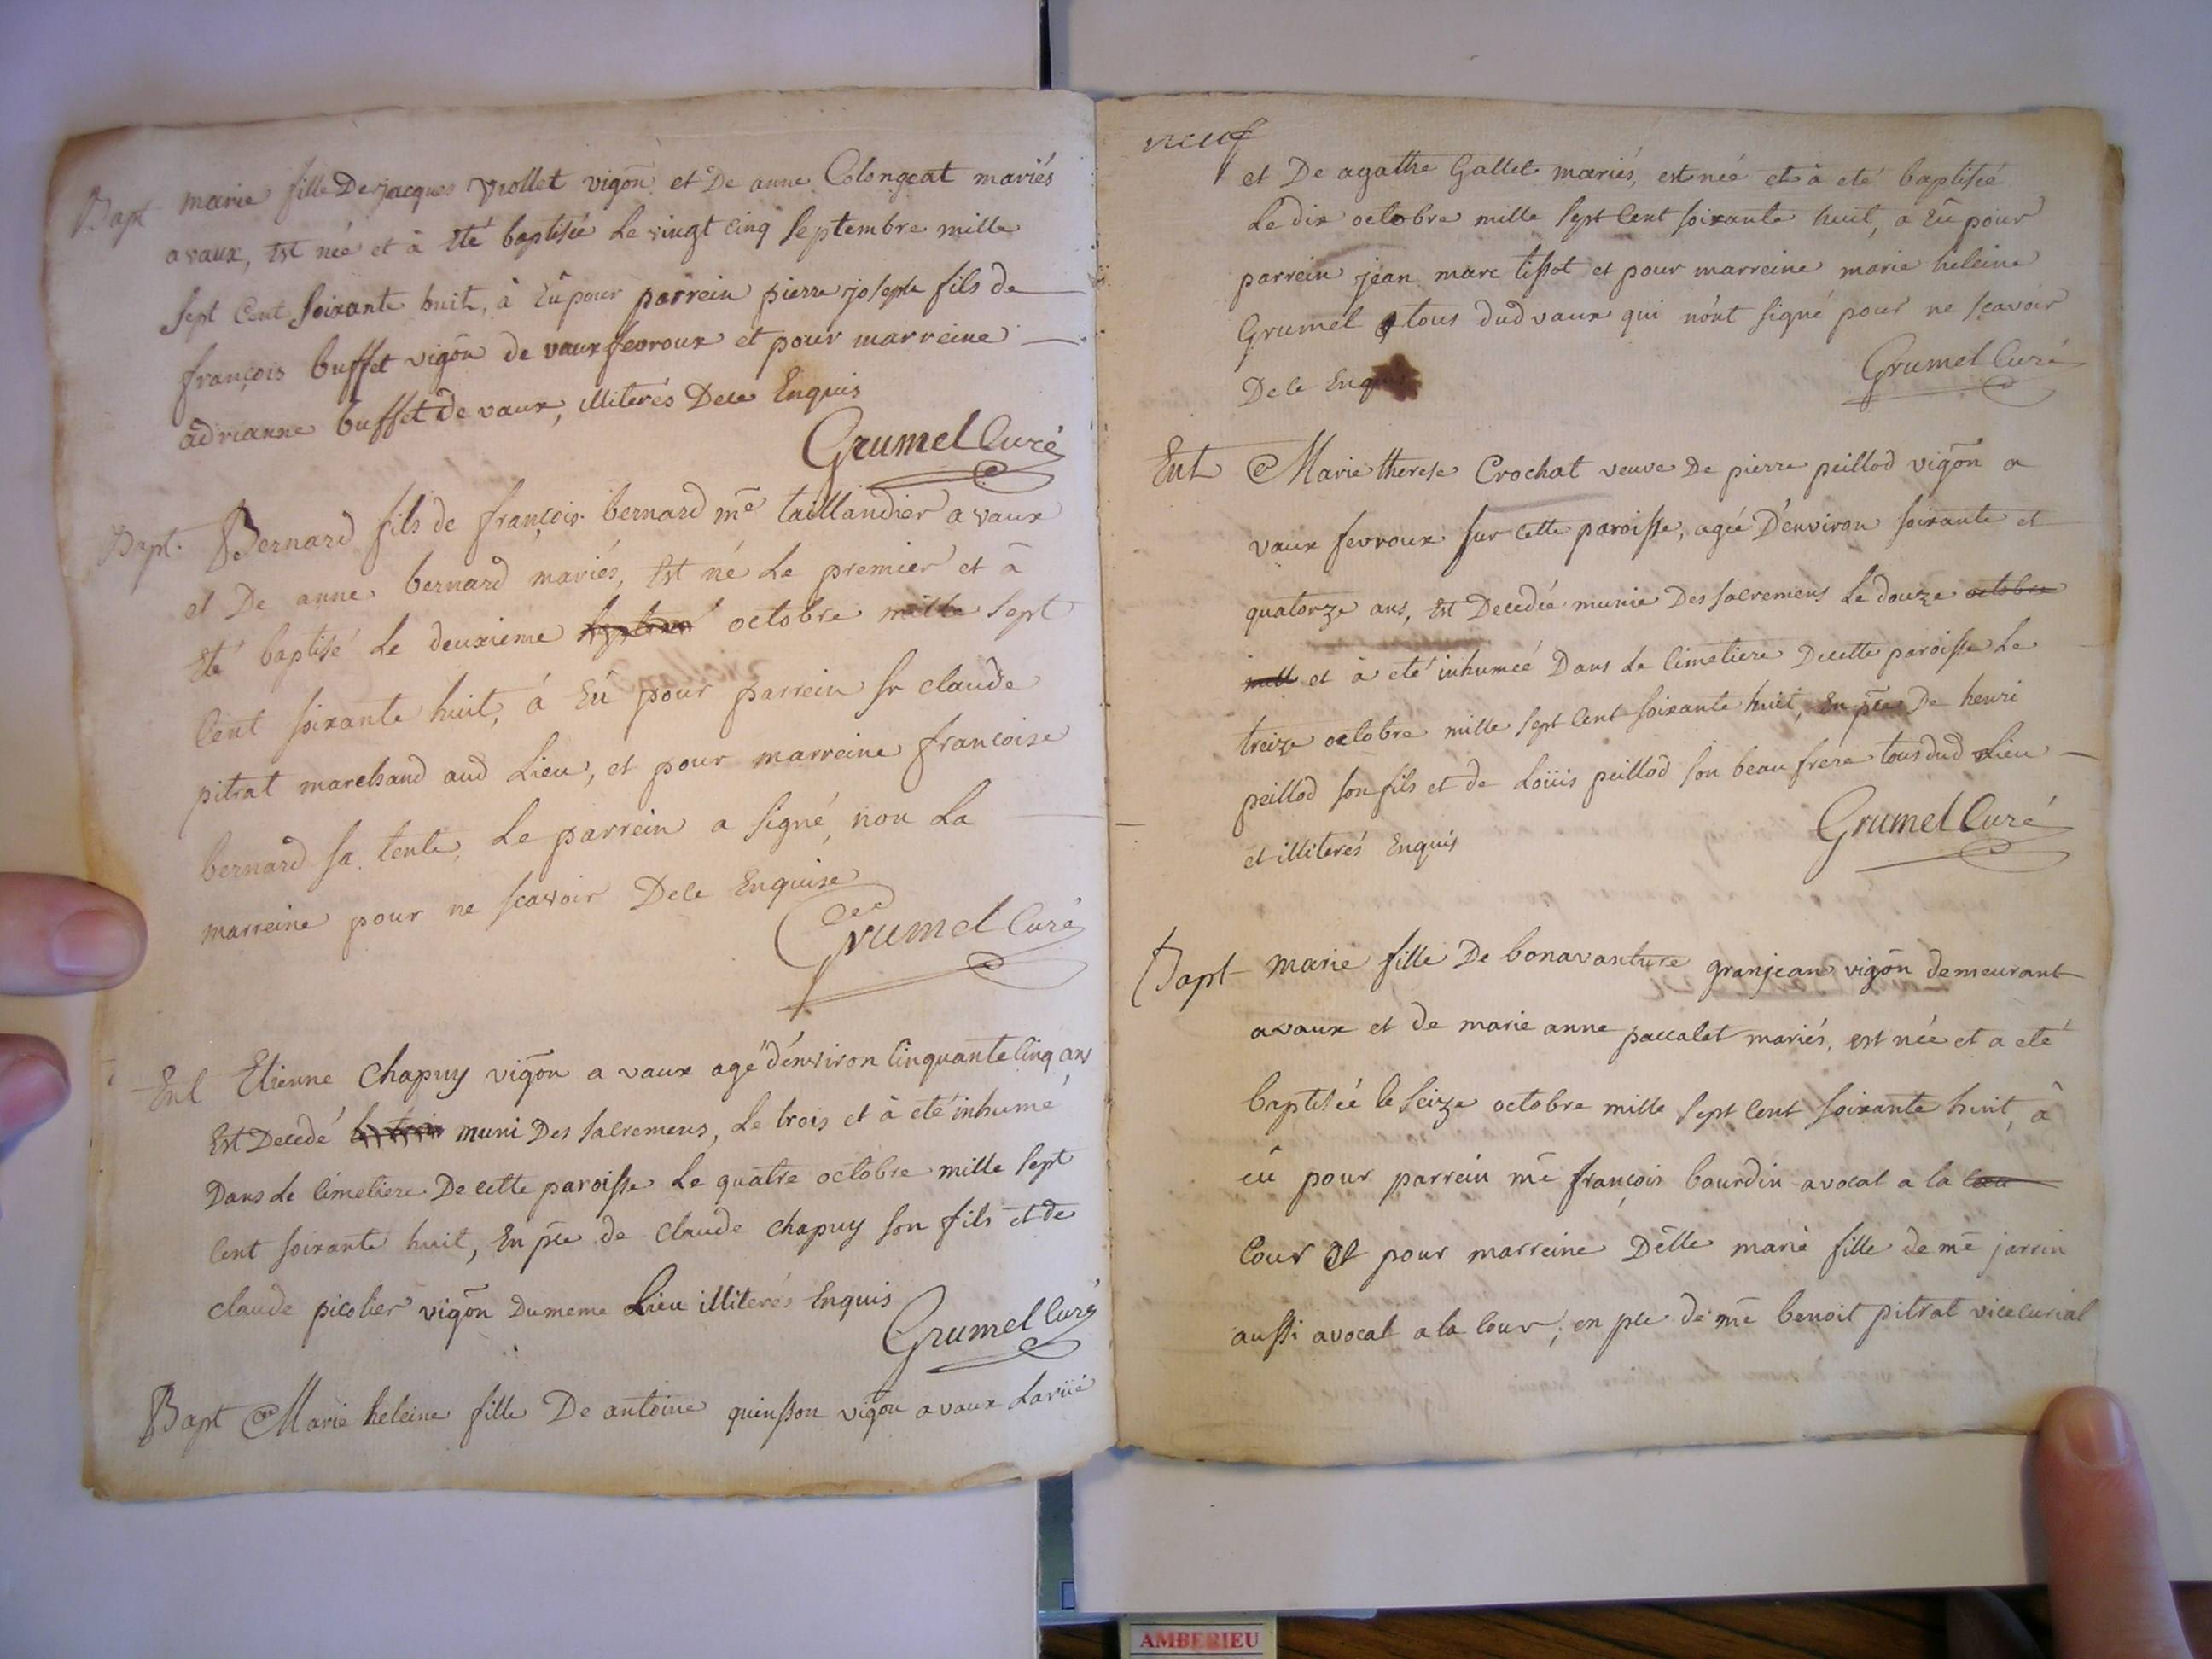 Bapt marie fille De jacques Viollet vigōn et De anne Colongeat mariés
a vaux, Est née et à Eté baptisée Le vingt cinq Septembre mille
Sept Cent Soixante huit, à Eû pour parrein pierre joseph fils de
françois buffet vigōn de vaux fevroux et pour marreine
adrianne buffet de vaux, illiterés De ce Enquis
Grumel Curé
Bapt. Bernard fils de françois bernard mē taillandier a vaux
et De anne bernard mariés, Est né Le premier et à
Eté baptisé Le deuxieme octobre mille Sept
Cent soixante huit, á Eû pour parrein Sr claude
pitrat marchand aud Lieu, et pour marreine françoise
bernard sa tente, Le parrein a signé, non La
marreine pour ne scavoir De ce Enquise
Grumel Curé
Ent Etienne Chapuy vigōn a vaux agé d'environ Cinquante Cinq ans
Est Decedé muni Des sacremens, Le trois et à eté inhumé
Dans Le Cimetiere De cette paroisse Le quatre octobre mille Sept
Cent soixante huit, En pce de claude chapuy son fils et de
claude picolier vigōn Du meme Lieu illiterés Enquis
Grumel Curé
Bapt Marie heleine fille De antoine quinsson vigōn a vaux Larüe
neuf
et De agathe Gallet mariés, est née et à eté baptisée
Le dix octobre mille Sept Cent soixante huit, a Eû pour
parrein jean marc tissot et pour marreine marie heleine
Grumel tous dud vaux qui n'ont signé pour ne scavoir
De ce Enquis
Grumel Curé
Ent Marie therese Crochat veuve De pierre peillod vigōn a
vaux fevroux sur cette paroisse, agée D'environ soixante et
quatorze ans, Est Decedée munie Des sacremens Le douze octobre
mill et à eté inhumeé Dans Le Cimetiere De cette paroisse Le
treize octobre mille sept Cent soixante huit, En pce De henri
peillod son fils et de Loüis peillod son beau frere tous dud Lieu
et illiterés Enquis
Grumel Curé
Bapt marie fille De bonavanture granjean vigōn demeurant
a vaux et de marie anne paccalet mariés, est née et a eté
baptisée le seize octobre mille Sept Cent soixante huit, à
eû pour parrein mē françois bourdin avocat a la cou
Cour Et pour marreine Dēlle marie fille de mē jarrin
aussi avocat a la Cour, en pce de mē benoit pitrat vicecurial
AMBERIEU